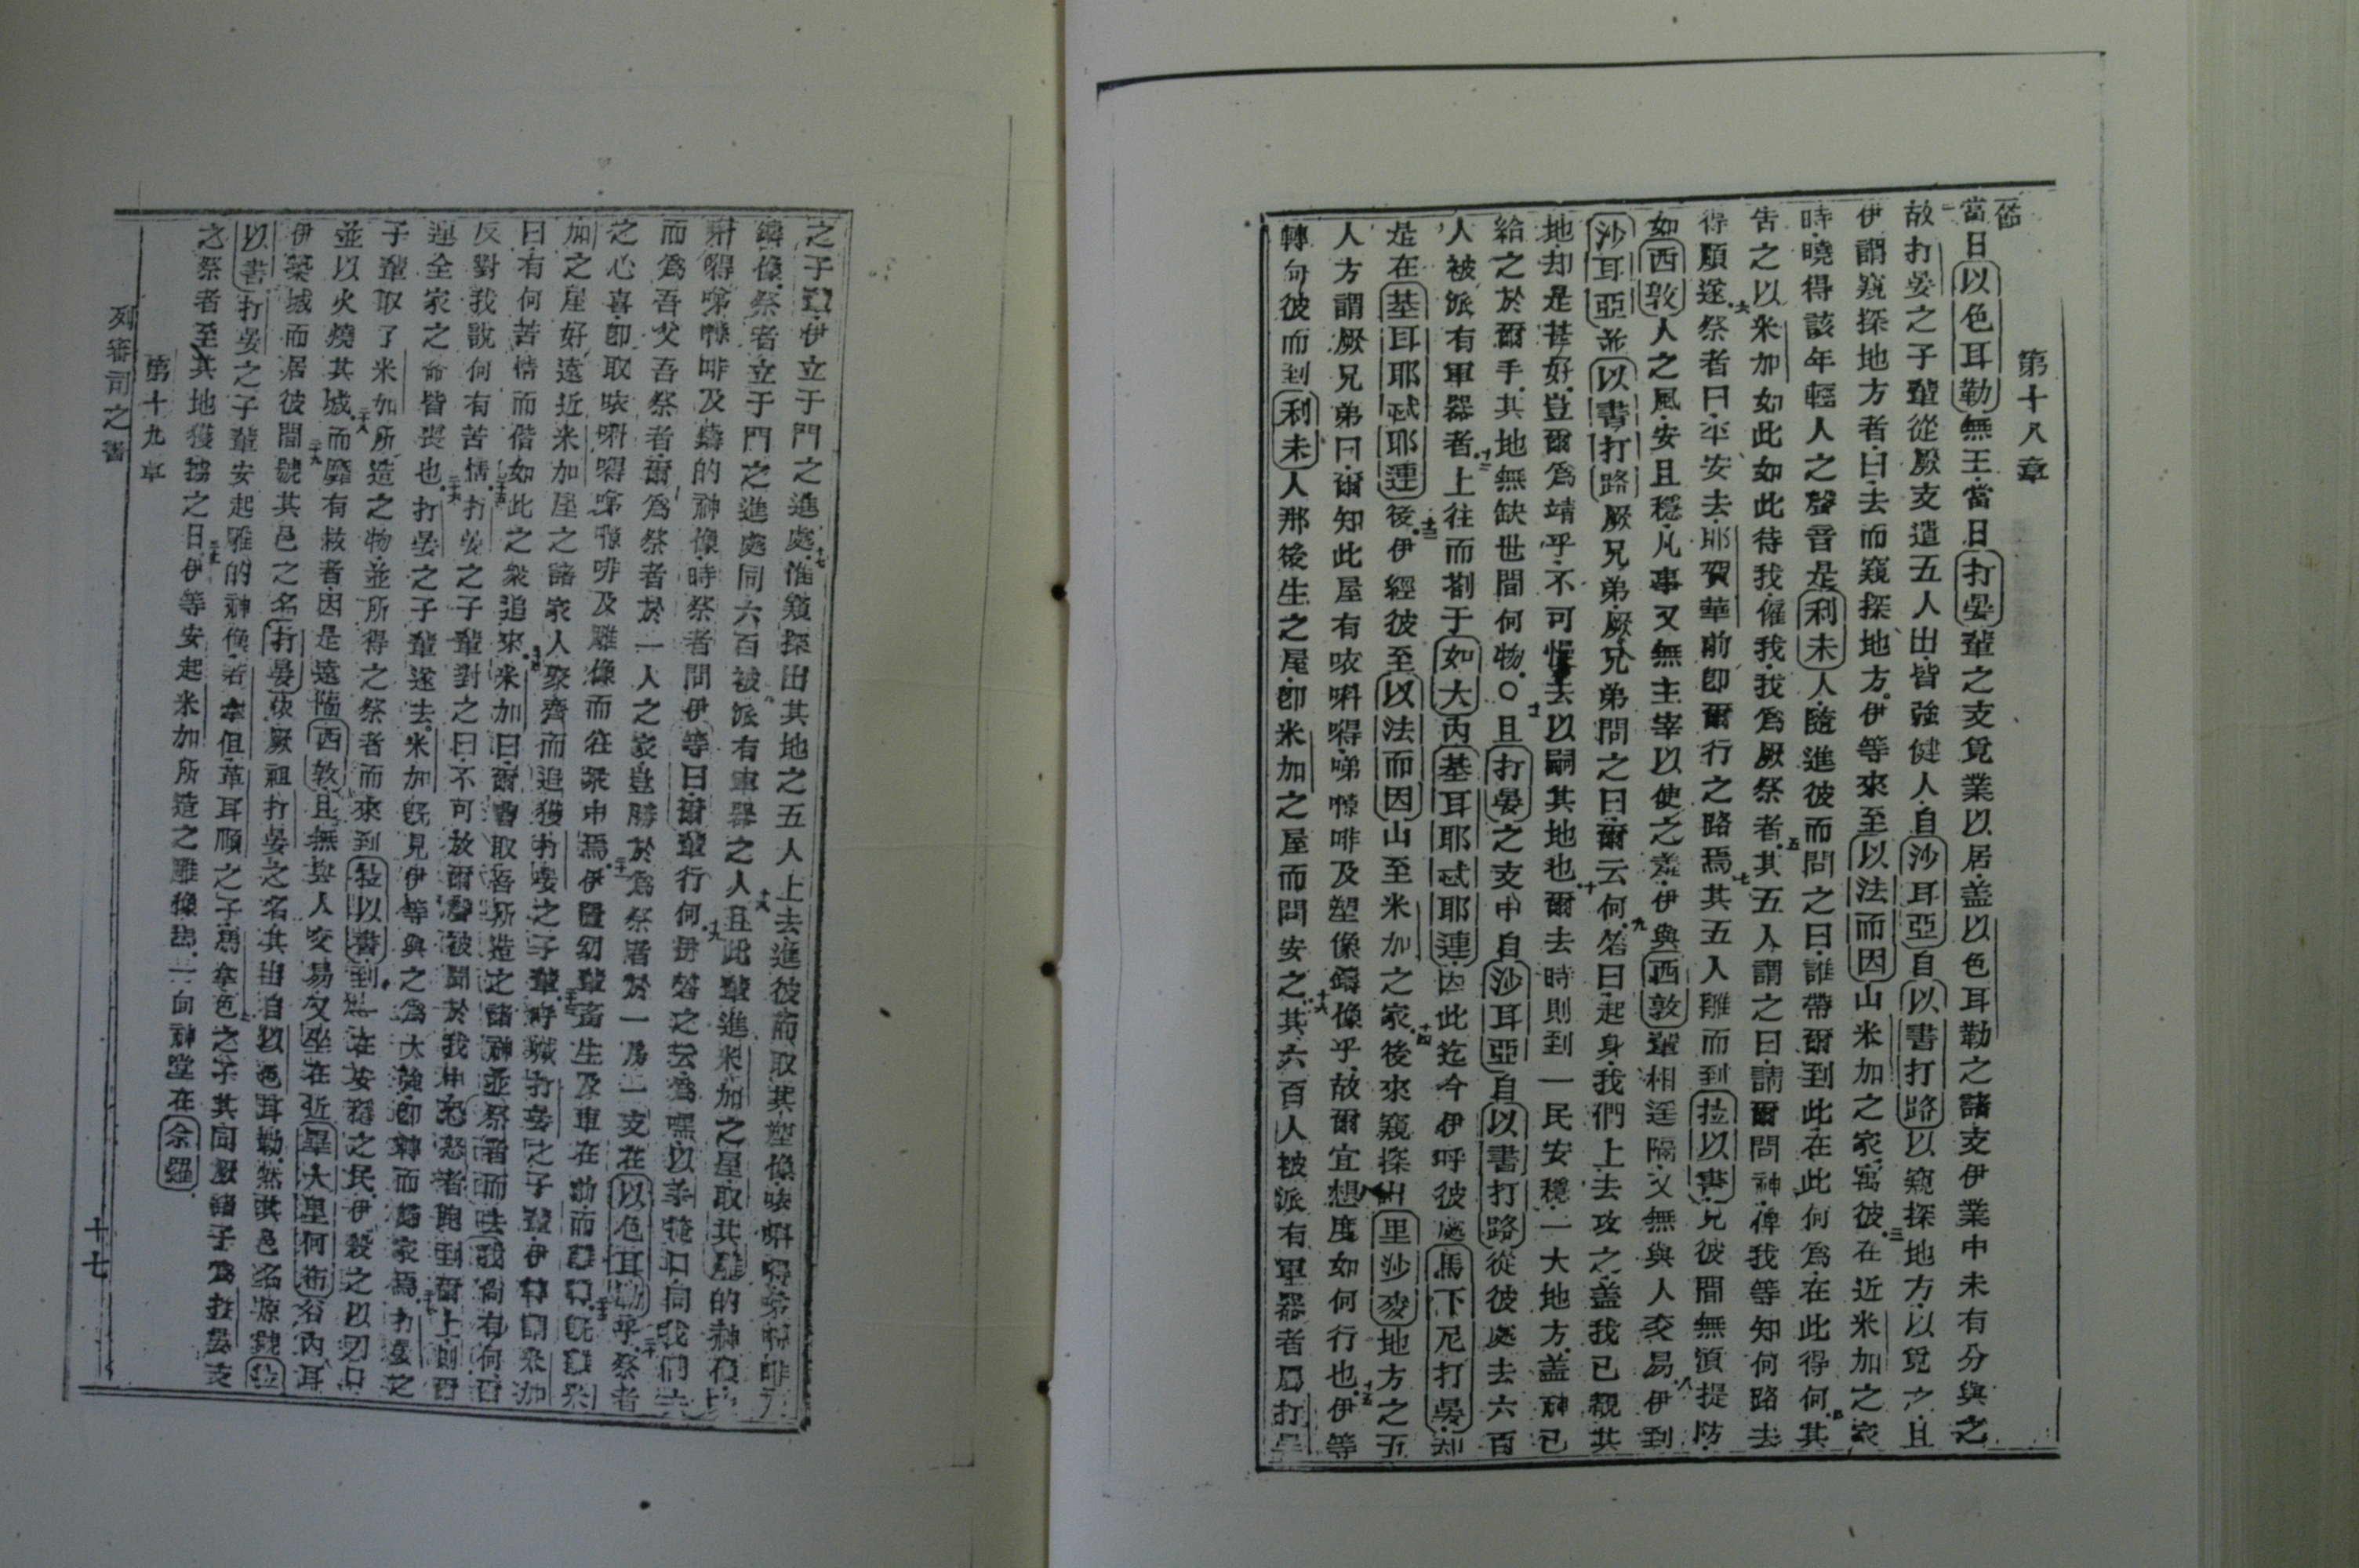 第十八章
節
當日以色耳勒無王當日打晏輩之支覓業以居盖以色耳勒之諸支伊業中未有分與之
故打晏之子輩從厥支遣五人出皆強健人自沙耳亞自以書打路以窺探地方以覓之且
伊謂窺探地方者曰去而窺探地方伊等來至以法而因山米加之家寓彼三在近米加之家
時曉得該年輕人之聲音是利未人隨進彼而問之曰誰帶爾到此在此何為在此得何四其
告之以米加如此如此待我僱我我為厥祭者五其五人謂之曰請爾問神俾我等知何路去
得順遂六祭者曰平安去耶賀華前即爾行之路焉七其五人離而到拉以書見彼間無須提防
如西敦人之風安且穩凡事又無主宰以使之羞伊與西敦輩相遙隔又無與人交易八伊到
沙耳亞並以書打路厥兄弟厥兄弟問之曰爾云何九答曰起身我們上去攻之盖我已觀其
地却是甚好豈爾為靖乎不可懶去以嗣其地也十爾去時則到一民安穩一大地方盖神已
給之於爾手其地無缺世間何物○十一且打晏之支中自沙耳亞自以書打路從彼處去六百
人被派有軍器者十二上往而劄于如大丙基耳耶忒耶連因此迄今伊呼彼處馬下尼打晏却
是在基耳耶忒耶連後十三伊經彼至以法而因山至米加之家十四後來窺探出里沙麥地方之五
人方謂厥兄弟曰爾知此屋有咴㖕嘚啼㗚啡及塑像鑄像乎故爾宜想度如何行也十五伊等
轉向彼而到利未人那後生之屋即米加之屋而問安之十六其六百人被派有軍器者屬打晏
之子輩伊立于門之進處十七惟窺探出其地之五人上去進彼而取其塑像
鑄像祭者立于門之進處同六百被派有軍器之人十八且此輩進米加之屋取其雕的神像
及鑄的神像時祭者問伊等曰爾輩行何十九伊答之云為嘿以手掩口向我們去
而為吾父吾祭者爾為祭者於一人之家豈勝於為祭者於一為一支在以色耳勒乎二十祭者
之心喜即取及雕像而往衆中焉二十一伊置幼輩畜生及車在前而
加之屋好遠近米加屋之諸家人聚齊而追獲打晏之子輩二十三打晏之子輩伊
曰有何苦情而偕如此之衆追來二十四米加曰爾曹取吾所造之諸神並祭者而去我尚有何
反對我說何有苦情二十五打晏之子輩對之曰不可放爾聲被聞於我中恐怒者跑到爾上
連全家之命皆喪也二十六打晏之子輩遂去米加既見伊等與之為大強即轉而歸家焉打晏之
子輩取了米加所造之物並所得之祭者而來到拉以書到在安穩之民伊殺之以刃口
並以火燒其城二十八而靡有救者因是遠隔西敦且無與人交易又坐在近
伊築城而居彼間二十九號其邑之名打晏依厥祖打晏之名其出自以色耳勒然其邑名原號拉
以書三十打晏之子輩安起雕的神像若拿但革耳順之子馬拿色之子其同厥諸子為打晏支
之祭者至其地獲擄之日三十一伊等安起米加所造之雕像一向神堂在佘羅
第十九章
列審司之書
十七